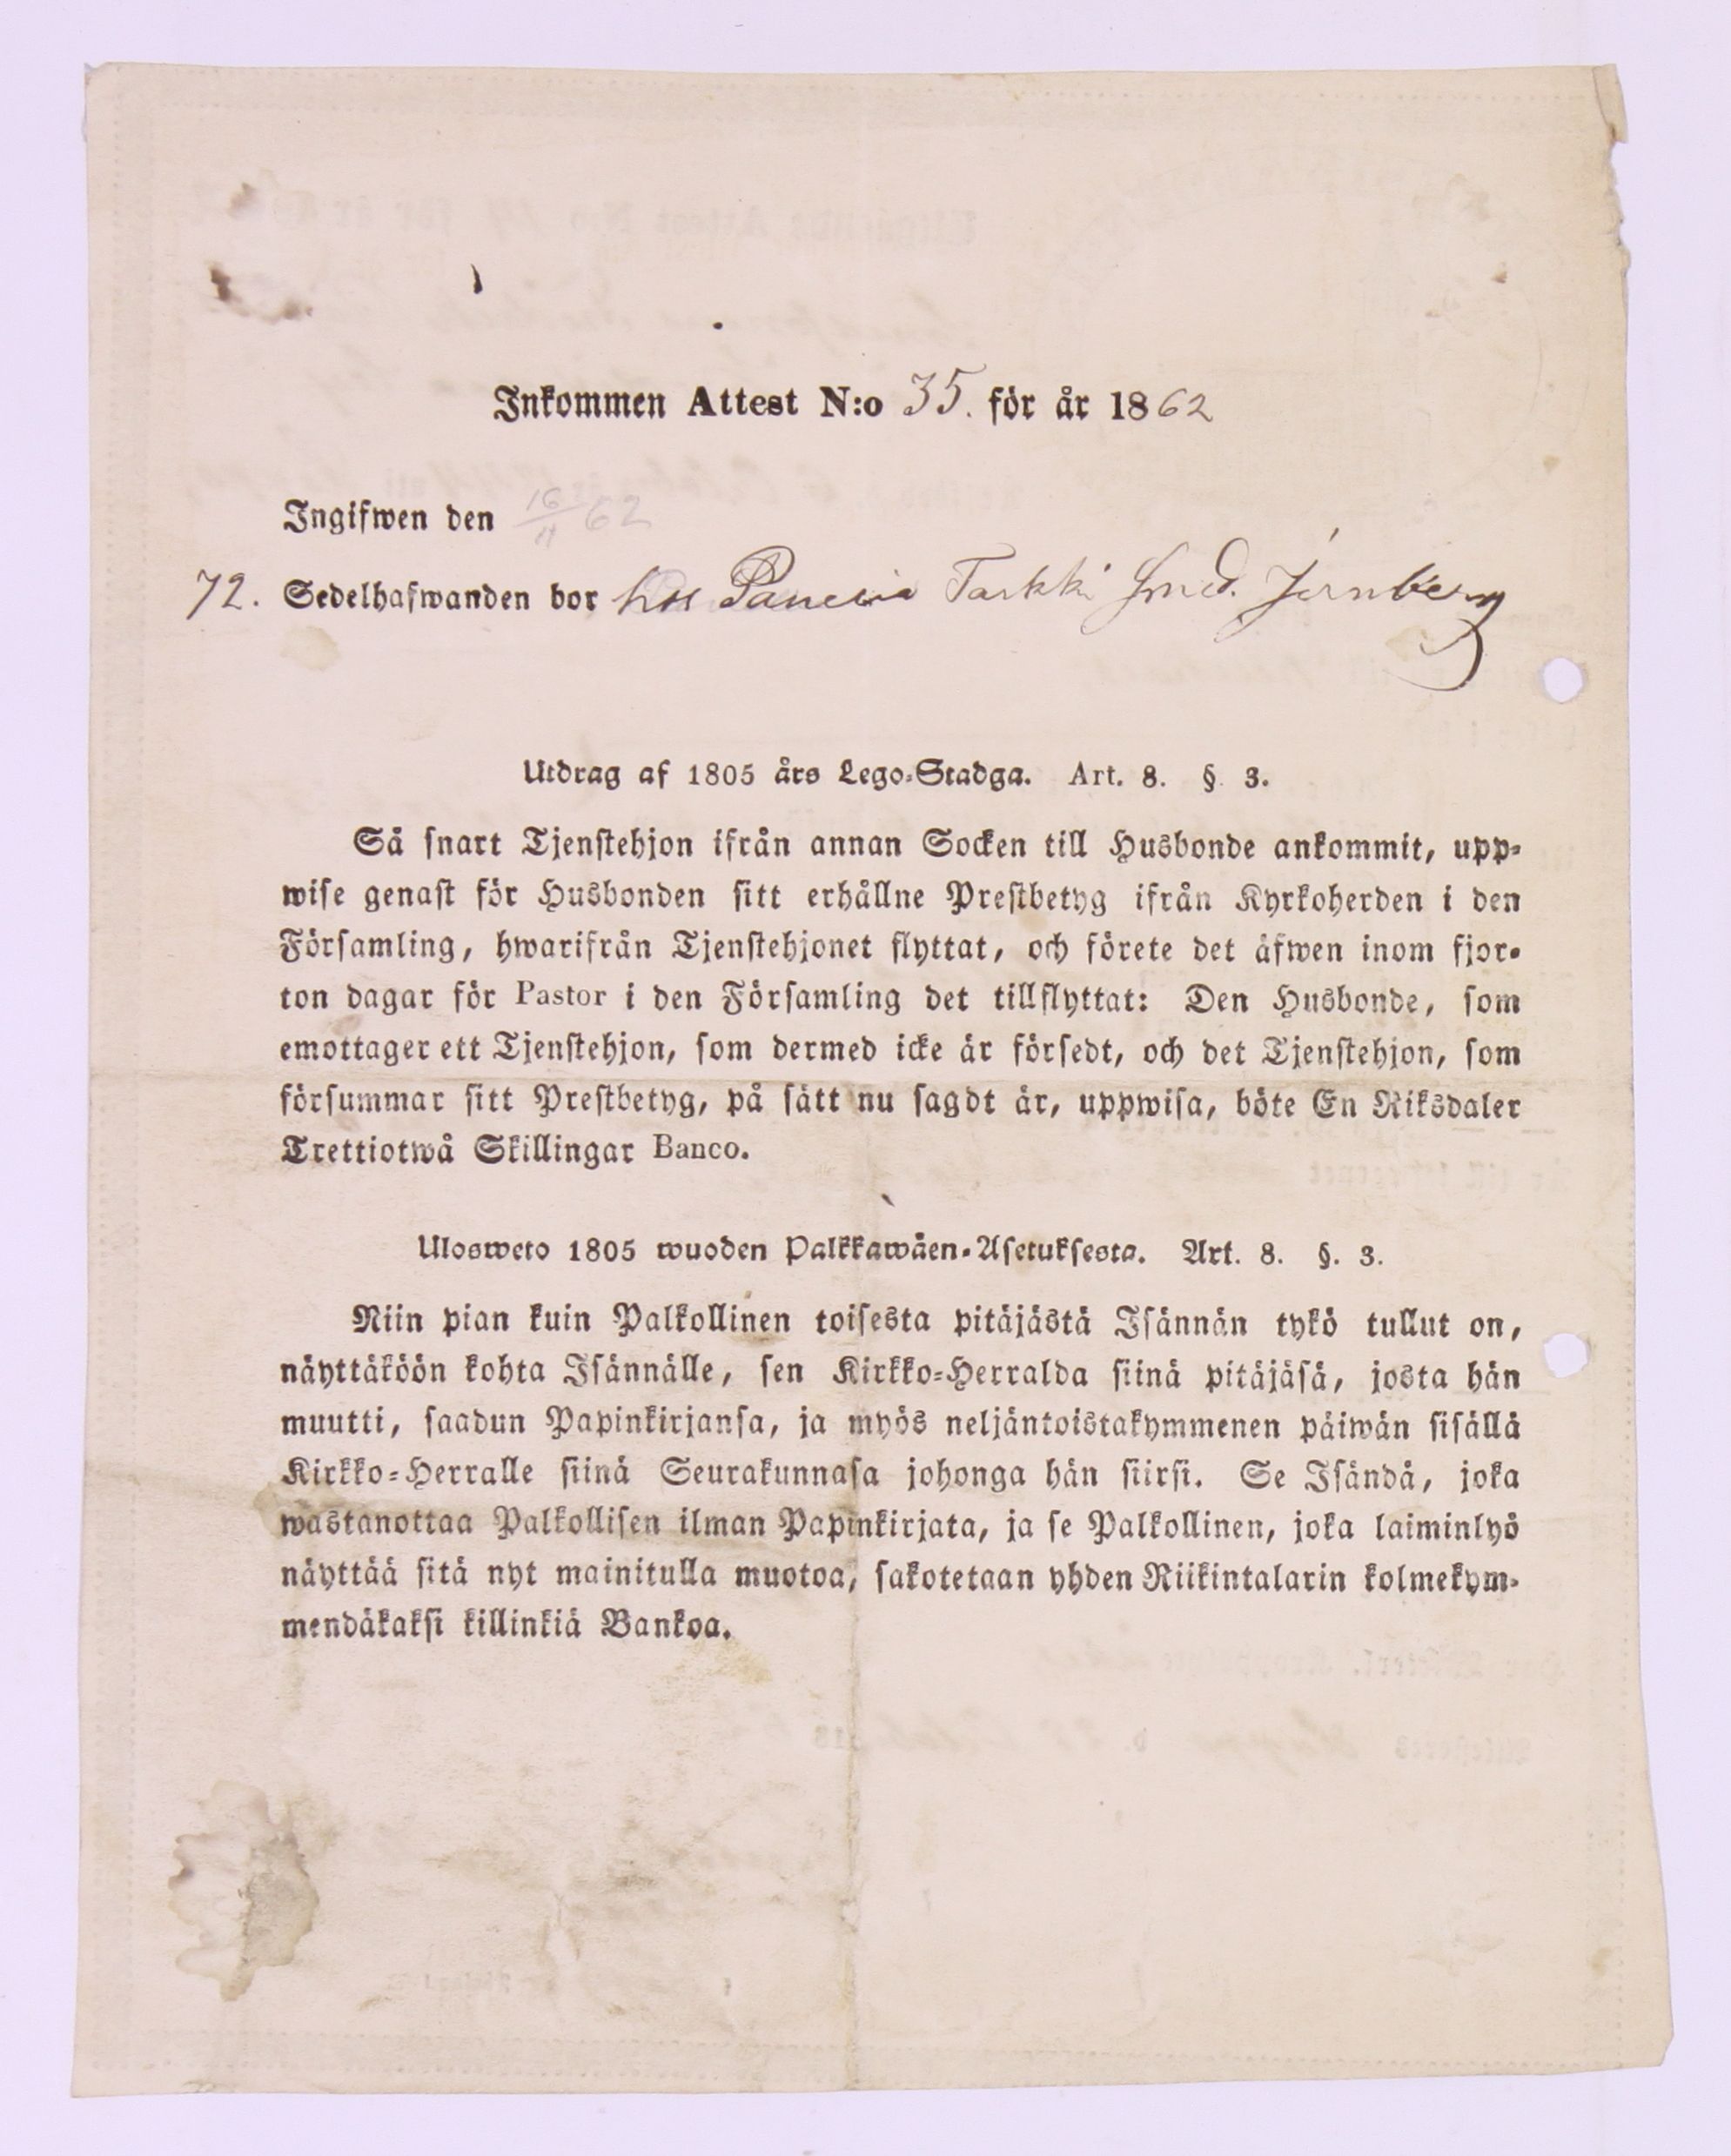 Inkommen Attest N:o 35. för år 1862
Ingifwen den 16/11 62
72. Sedelhafwanden bor hos Tarkki Smed. Jernberg
Utdrag af 1805 års Lego-Stadga. Art. 8. § 3.
Så snart Tjenstehjon ifrån annan Socken till Husbonde ankommit, upp-
wise genast för Husbonden sitt erhållne Prestbetyg ifrån Kyrkoherden i den
Församling, hwarifrån Tjenstehjonet flyttat, och förete det äfwen inom fjor-
ton dagar för Pastor i den Församling det tillflyttat: Den Husbonde, som
emottager ett Tjenstehjon, som dermed icke är försedt, och det Tjenstehjon, som
försummar sitt Prestbetyg, på sätt nu sagdt är, uppwisa, böte En Riksdaler
Trettiotwå Skillingar Banco.
Ulosweto 1805 wuoden Palkkawäen-Asetuksesta. Art. 8. §. 3.
Niin pian kuin Palkollinen toisesta pitäjästä Isännän tykö tullut on,
näyttäköön kohta Isännälle, sen Kirkko-Herralda siinä pitäjäsä, josta hän
muutti, saadun Papinkirjansa, ja myös neljäntoistakymmenen päiwän sisällä
Kirkko-Herralle siinä Seurakunnasa johonga hän siirsi. Se Isändä, joka
wastanottaa Palkollisen ilman Papinkirjata, ja se Palkollinen, joka laiminlyö
näyttää sitä nyt mainitulla muotoa, sakotetaan yhden Riikintalarin kolmekym-
mendäkaksi killinkiä Bankoa.